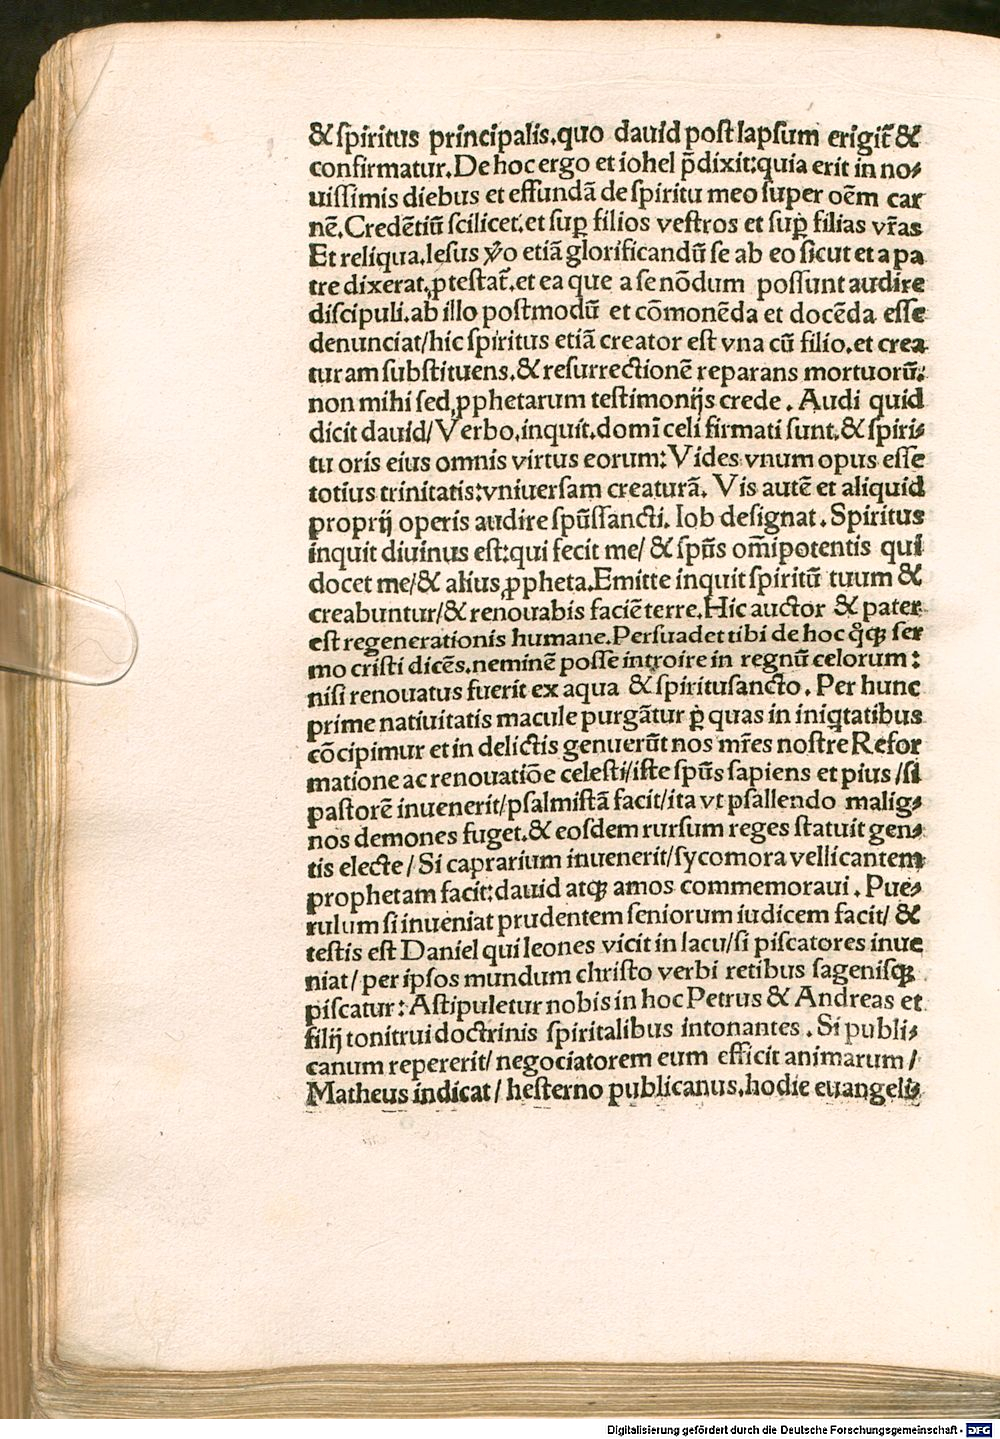 &ſpiritus principalis.quo dauid poſtlapſum erigit̃ &
confirmatur.De hoc ergo et iohel p̃dixit:quia erit in no⸗
uiſſimis diebus et effundã de ſpiritu meo ſuper oẽm car
nẽ.Credẽtiũ ſcilicet.et ſuꝑ filios veſtros et ſuꝑ filias vr̃as
Et reliqua.Ieſus ṽo etiã glorificandũ ſe ab eo ſicut et a pa
tre dixerat,ꝓteſtat̃.et ea que a ſe nõdum poſſunt audire
diſcipuli.ab illo poſtmodũ et cõmonẽda et docẽda eſſe
denunciat/hic ſpiritus etiã creator eſt vna cũ filio.et crea
turam ſubſtituens.& reſurrectionẽ reparans mortuorũ:
non mihi ſed ꝓphetarum teſtimonijs crede . Audi quid
dicit dauid/Verbo.inquit.domĩ celi firmati ſunt.& ſpiri⸗
tu oris eius omnis virtus eorum:Vides vnum opus eſſe
totius trinitatis:vniuerſam creaturã. Vis autẽ et aliquid
proprij operis audire ſpũſſancti. Iob deſignat . Spiritus
inquit diuinus eſt:qui fecit me/ & ſpũs om̃ipotentis qui
docet me/& alius ꝓpheta.Emitte inquit ſpiritũ tuum &
creabuntur/& renouabis faciẽ terre.Hic auctor & pater
eſt regenerationis humane.Perſuadet tibi de hoc q̊qꝫ ſer
mo criſti dicẽs.neminẽ poſſe introire in regnũ celorum :
niſi renouatus fuerit ex aqua &ſpirituſancto . Per hunc
prime natiuitatis macule purgãtur ꝑ quas in iniqtatibus
cõcipimur et in delictis genuerũt nos mr̃es noſtre Refor
matione ac renouatiõe celeſti/iſte ſpũs ſapiens et pius /ſi
paſtorẽ inuenerit/pſalmiſtã facit/ita vt pſallendo malig⸗
nos demones fuget.& eoſdem rurſum reges ſtatuit gen⸗
tis electe / Si caprarium inuenerit/ſycomora vellicantem
prophetam facit:dauid atqꝫ amos commemoraui . Pue⸗
rulum ſi inueniat prudentem ſeniorum iudicem facit/ &
teſtis eſt Daniel qui leones vicit in lacu/ſi piſcatores inue
niat/ per ipſos mundum chriſto verbi retibus ſageniſqꝫ
piſcatur : Aſtipuletur nobis in hoc Petrus & Andreas et
filij tonitrui doctrinis ſpiritalibus intonantes . Si publi⸗
canum repererit/ negociatorem eum efficit animarum /
Matheus indicat / heſterno publicanus.hodie euangeli⸗
Digitalisierung gefördert durch die Deutsche Forschungsgemeinschaft - DFG